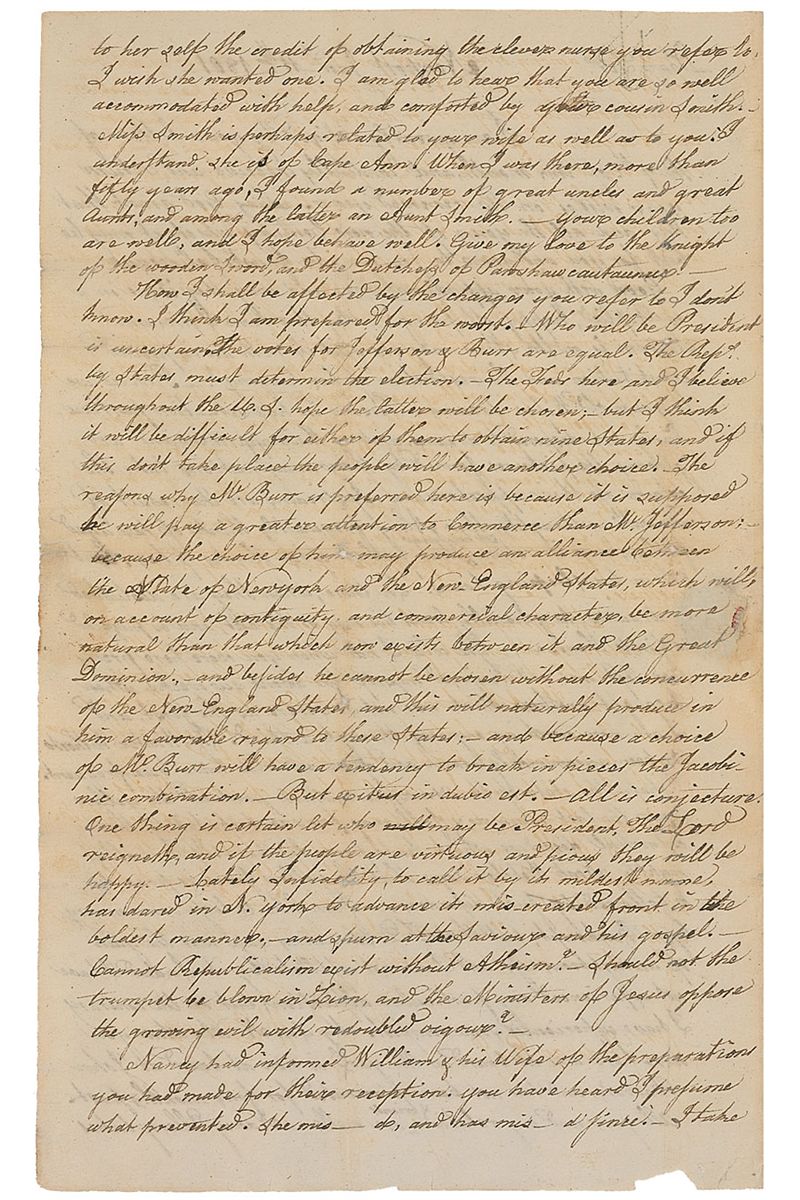 to her self the credit of obtaining the clever nurse you refer to.
I wish she wanted one. I am glad to hear that you are so well
accommodated with help, and comforted by your cousin Smith. –
Miss Smith is perhaps related to your wife as well as to you. I
understand she is of Cape Ann. When I was there, more than
fifty years ago, I found a number of great uncles and great
Aunts; and among the latter an Aunt Smith. – your children too
are well, and I hope behave well. Give my love to the Knight
of the wooden sword, and the Dutchess of –
How I shall be affected by the changes you refer to I don't
know. I think I am prepared for the worst. – Who will be President
is uncertain. The votes for Jefferson & Burr are equal. The Reps.
by States must determin the election. – The Feds here and I believe
throughout the U. S. hope the latter will be chosen; – but I think
it will be difficult for either of them to obtain nine States, and if
this don't take place the people will have another choice. – The
reasons why Mr. Burr is preferred here is because it is supposed
he will pay a greater attention to Commerce than Mr. Jefferson; –
because the choice of him may produce an alliance between
the State of Newyork and the New England States, which will,
on account of contiguity and commercial character, be more
natural than that which now exists between it and the Great
Dominion., – and besides he cannot be chosen without the concurrence
of the New England States, and this will naturally produce in
him a favorable regard to these States; – and because a choice
of Mr. Burr will have a tendency to break in pieces the Jacobi-
nic combination. – But exitus in dubio est. – All is conjecture.
One thing is certain let who will may be President, The Lord
reigneth, and if the people are virtuous and pious they will be
happy. – Lately Infidelity, to call it by its mildest name,
has dared in N. york to advance its mis-created front in the
boldest manner, – and spurn at the Saviour and his gospel. –
Cannot Republicalism exist without Atheism? – Should not the
trumpet be blown in Zion, and the Ministers of Jesus oppose
the growing evil with redoubled vigour? –
Nancy had informed William & his Wife of the preparations
you had made for their reception. you have heard I presume
what prevented. She mis— d, and has mis— d since. – I take